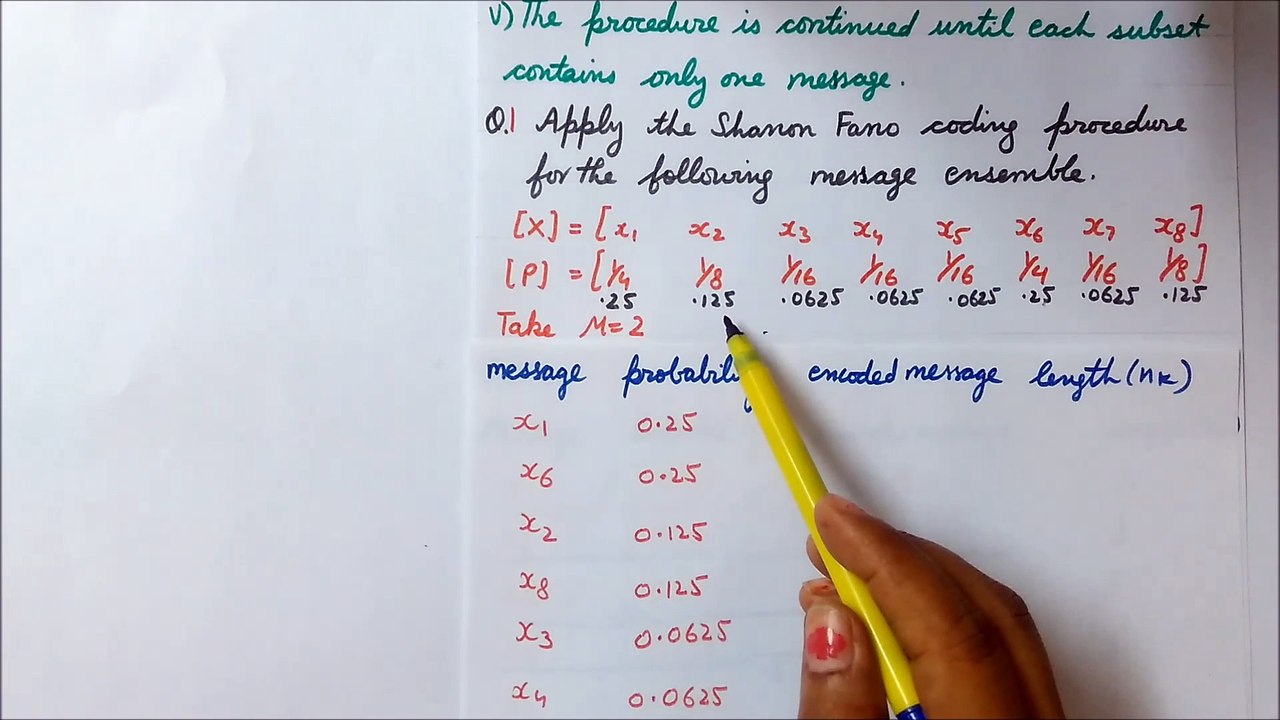 v) The procedure is continued until each subset
contains only one message.
Q.1 Apply the Shanon Fano coding procedure
for the following message ensemble.
[X] = [x1 x2 x3 x4 x5 x6 x7 x8]
[P] = [1/4 1/8 1/16 1/16 1/16 1/4 1/16 1/8]
.25 .125 .0625 .0625 .0625 .25 .0625 .125
Take M=2
message encoded message length (nk)
x1 0.25
x6 0.25
x2 0.125
x8 0.125
x3 0.0625
x4 0.0625